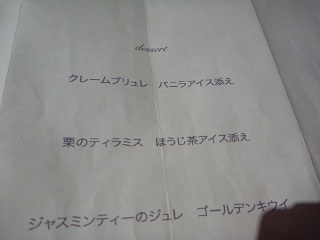 dessert
クレームブリュレ　バニラアイス添え
栗のティラミス　ほうじ茶アイス添え
ジャスミンティーのジュレ　ゴールデンキウイ